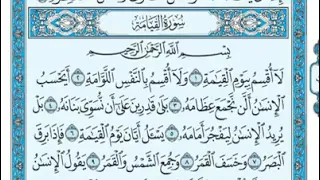 سُورَةُ القِيَامَةِ
بِسْمِ اللَّهِ الرَّحْمَٰنِ الرَّحِيمِ
لَا أُقْسِمُ بِيَوْمِ الْقِيَٰمَةِ ١ وَلَا أُقْسِمُ بِالنَّفْسِ اللَّوَّامَةِ ٢ أَيَحْسَبُ
الْإِنسَٰنُ أَلَّن نَّجْمَعَ عِظَامَهُ ٣ بَلَىٰ قَٰدِرِينَ عَلَىٰ أَن نُّسَوِّيَ بَنَانَهُ ٤ بَلْ
يُرِيدُ الْإِنسَٰنُ لِيَفْجُرَ أَمَامَهُ ٥ يَسْـَٔلُ أَيَّانَ يَوْمُ الْقِيَٰمَةِ ٦ فَإِذَا بَرِقَ
الْبَصَرُ ٧ وَخَسَفَ الْقَمَرُ ٨ وَجُمِعَ الشَّمْسُ وَالْقَمَرُ ٩ يَقُولُ الْإِنسَٰنُ